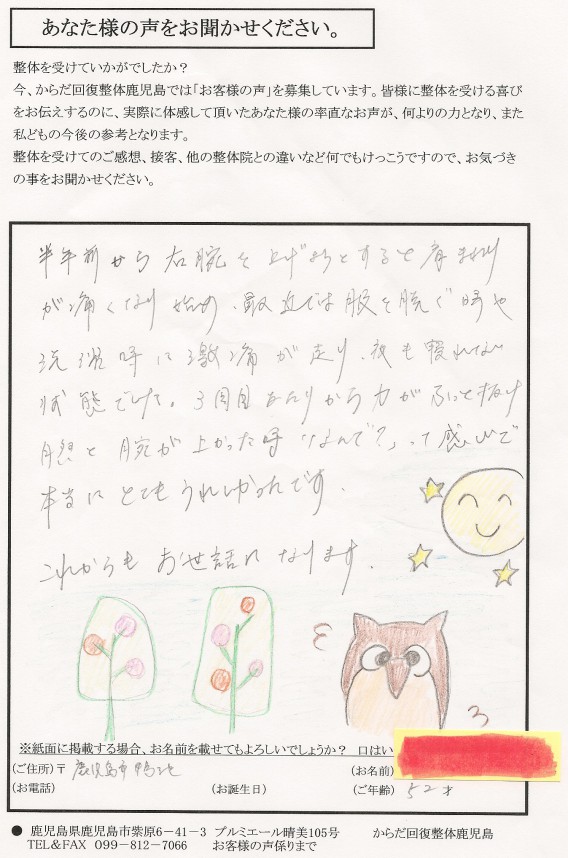 あなた様の声をお聞かせください。
整体を受けていかがでしたか？
今、からだ回復整体鹿児島では「お客様の声」を募集しています。皆様に整体を受ける喜び
をお伝えするのに、実際に体感して頂いたあなた様の率直なお声が、何よりの力となり、また
私どもの今後の参考となります。
整体を受けてのご感想、接客、他の整体院との違いなど何でもけっこうですので、お気づき
の事をお聞かせください。
半年前から右腕を上げようとすると肩まわり
が痛くなり始め、最近では服を脱ぐ時や
洗濯時に激痛が走り、夜も寝れない
状態でした。3回目あたりから力がふっと抜け
自然と腕が上がった時「なんで？」って感じで
本当にとてもうれしかったです。
これからもお世話になります。
※紙面に掲載する場合、お名前を載せてもよろしいでしょうか？ 口はい
(ご住所)〒 鹿児島市 (お名前)
(お電話) (お誕生日) (ご年齢) 52才
● 鹿児島県鹿児島市紫原6－41－3 プルミエール晴美105号 からだ回復整体鹿児島
TEL＆FAX 099－812－7066 お客様の声係りまで